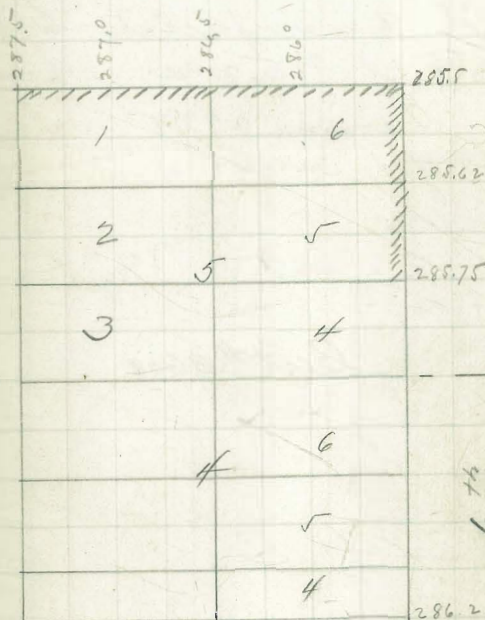 287.5 287.0 286.5 286.0
285.5
1 6
285.62
2 5
5 285.75
3 4
6
4
5
4
286.2